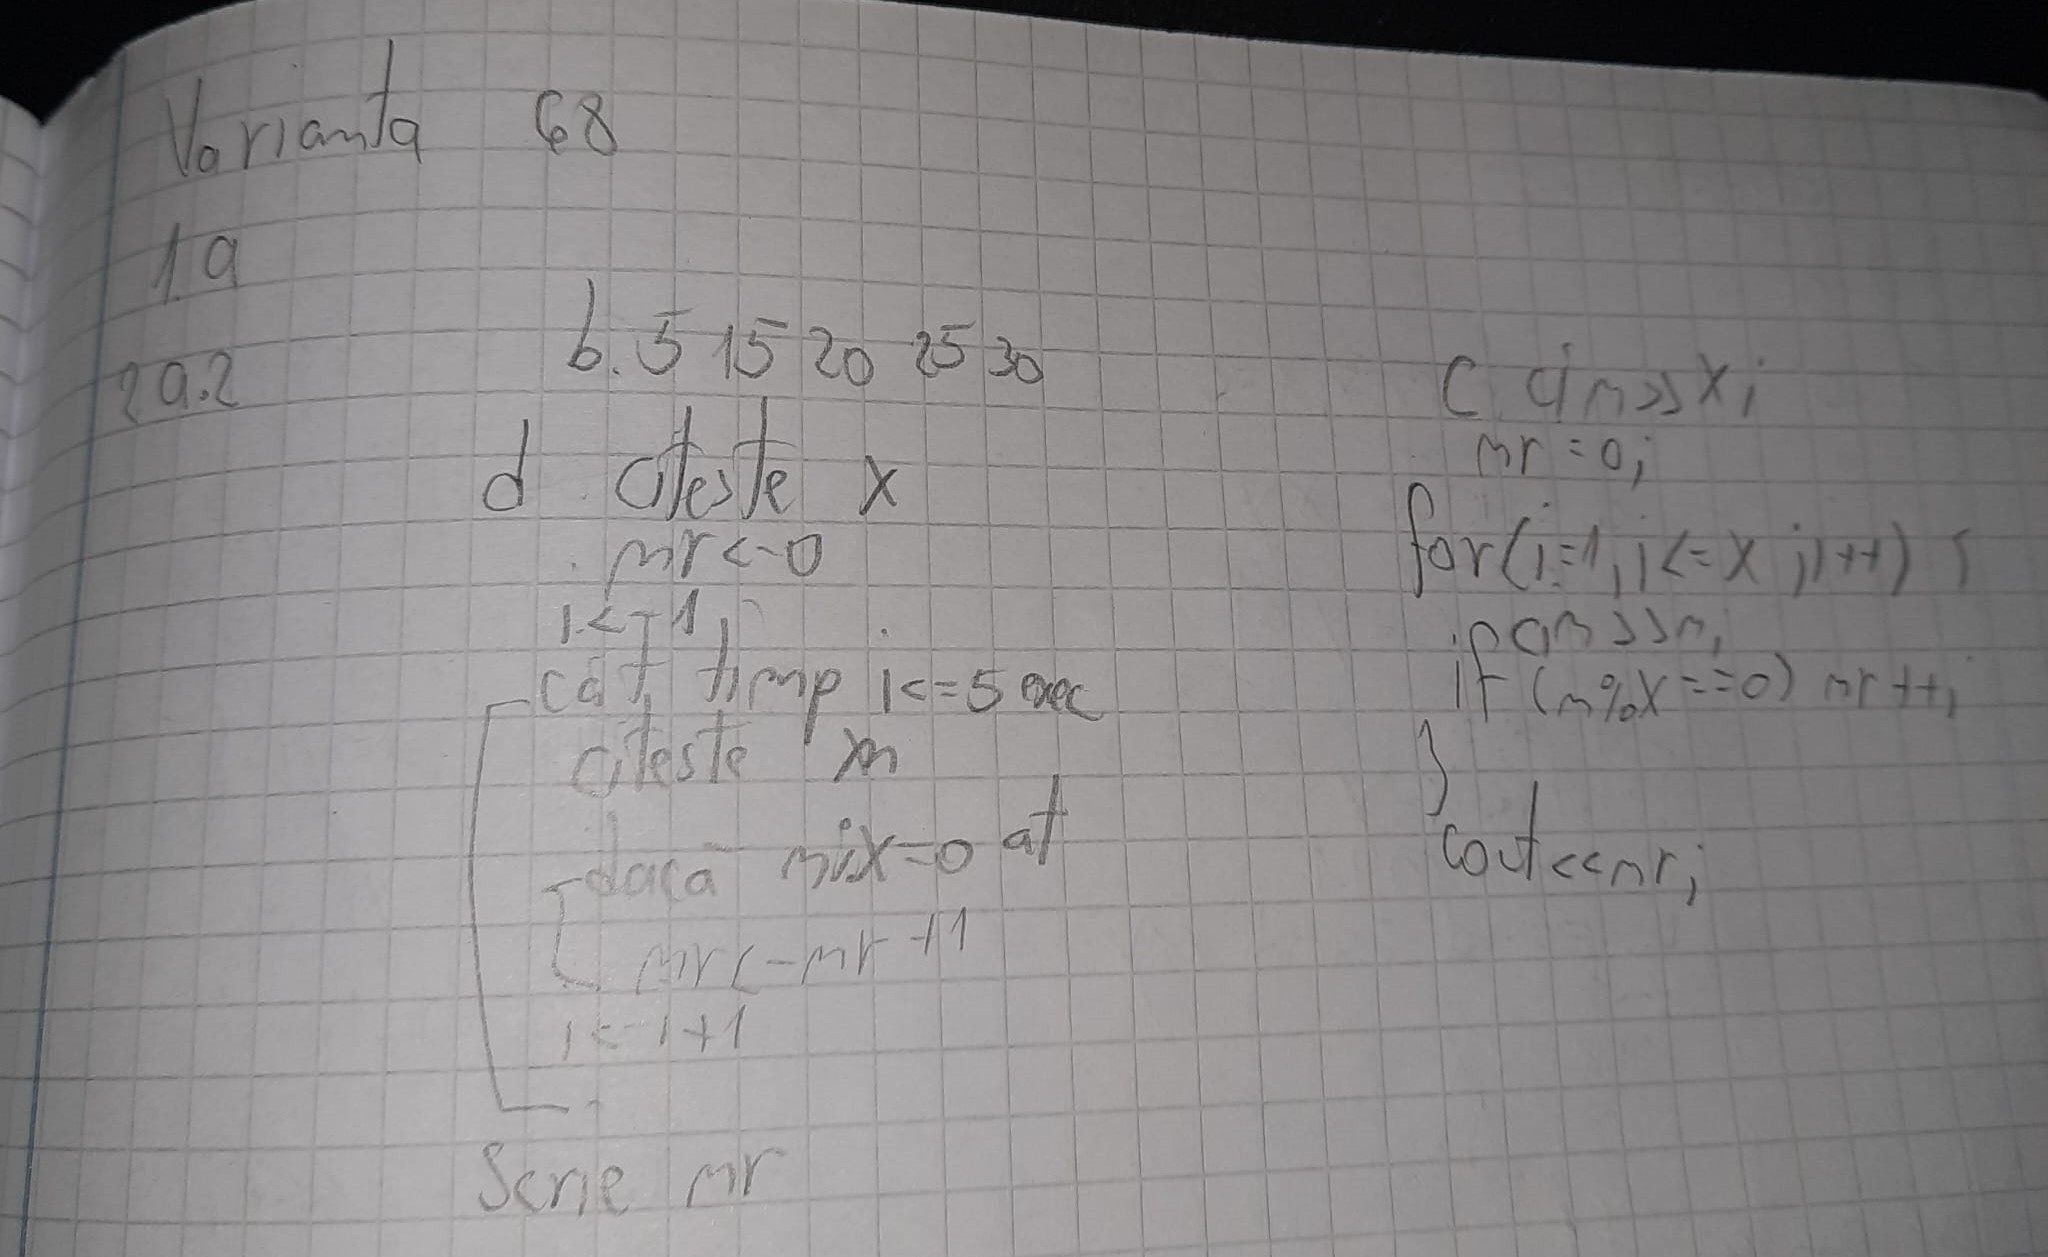 Varianta 68
1.a
2a.2
b. 5 15 20 25 30
d. citeste x
nr<-0
i<-1
cât timp i<=5 exec
citeste n
dacă n%x=0 at
nr<-nr+1
i<-i+1
Scrie nr
c. cin>>x;
nr=0;
for(i=1;i<=x;i++){
cin>>n;
if(n%x==0) nr++;
}
cout<<nr;